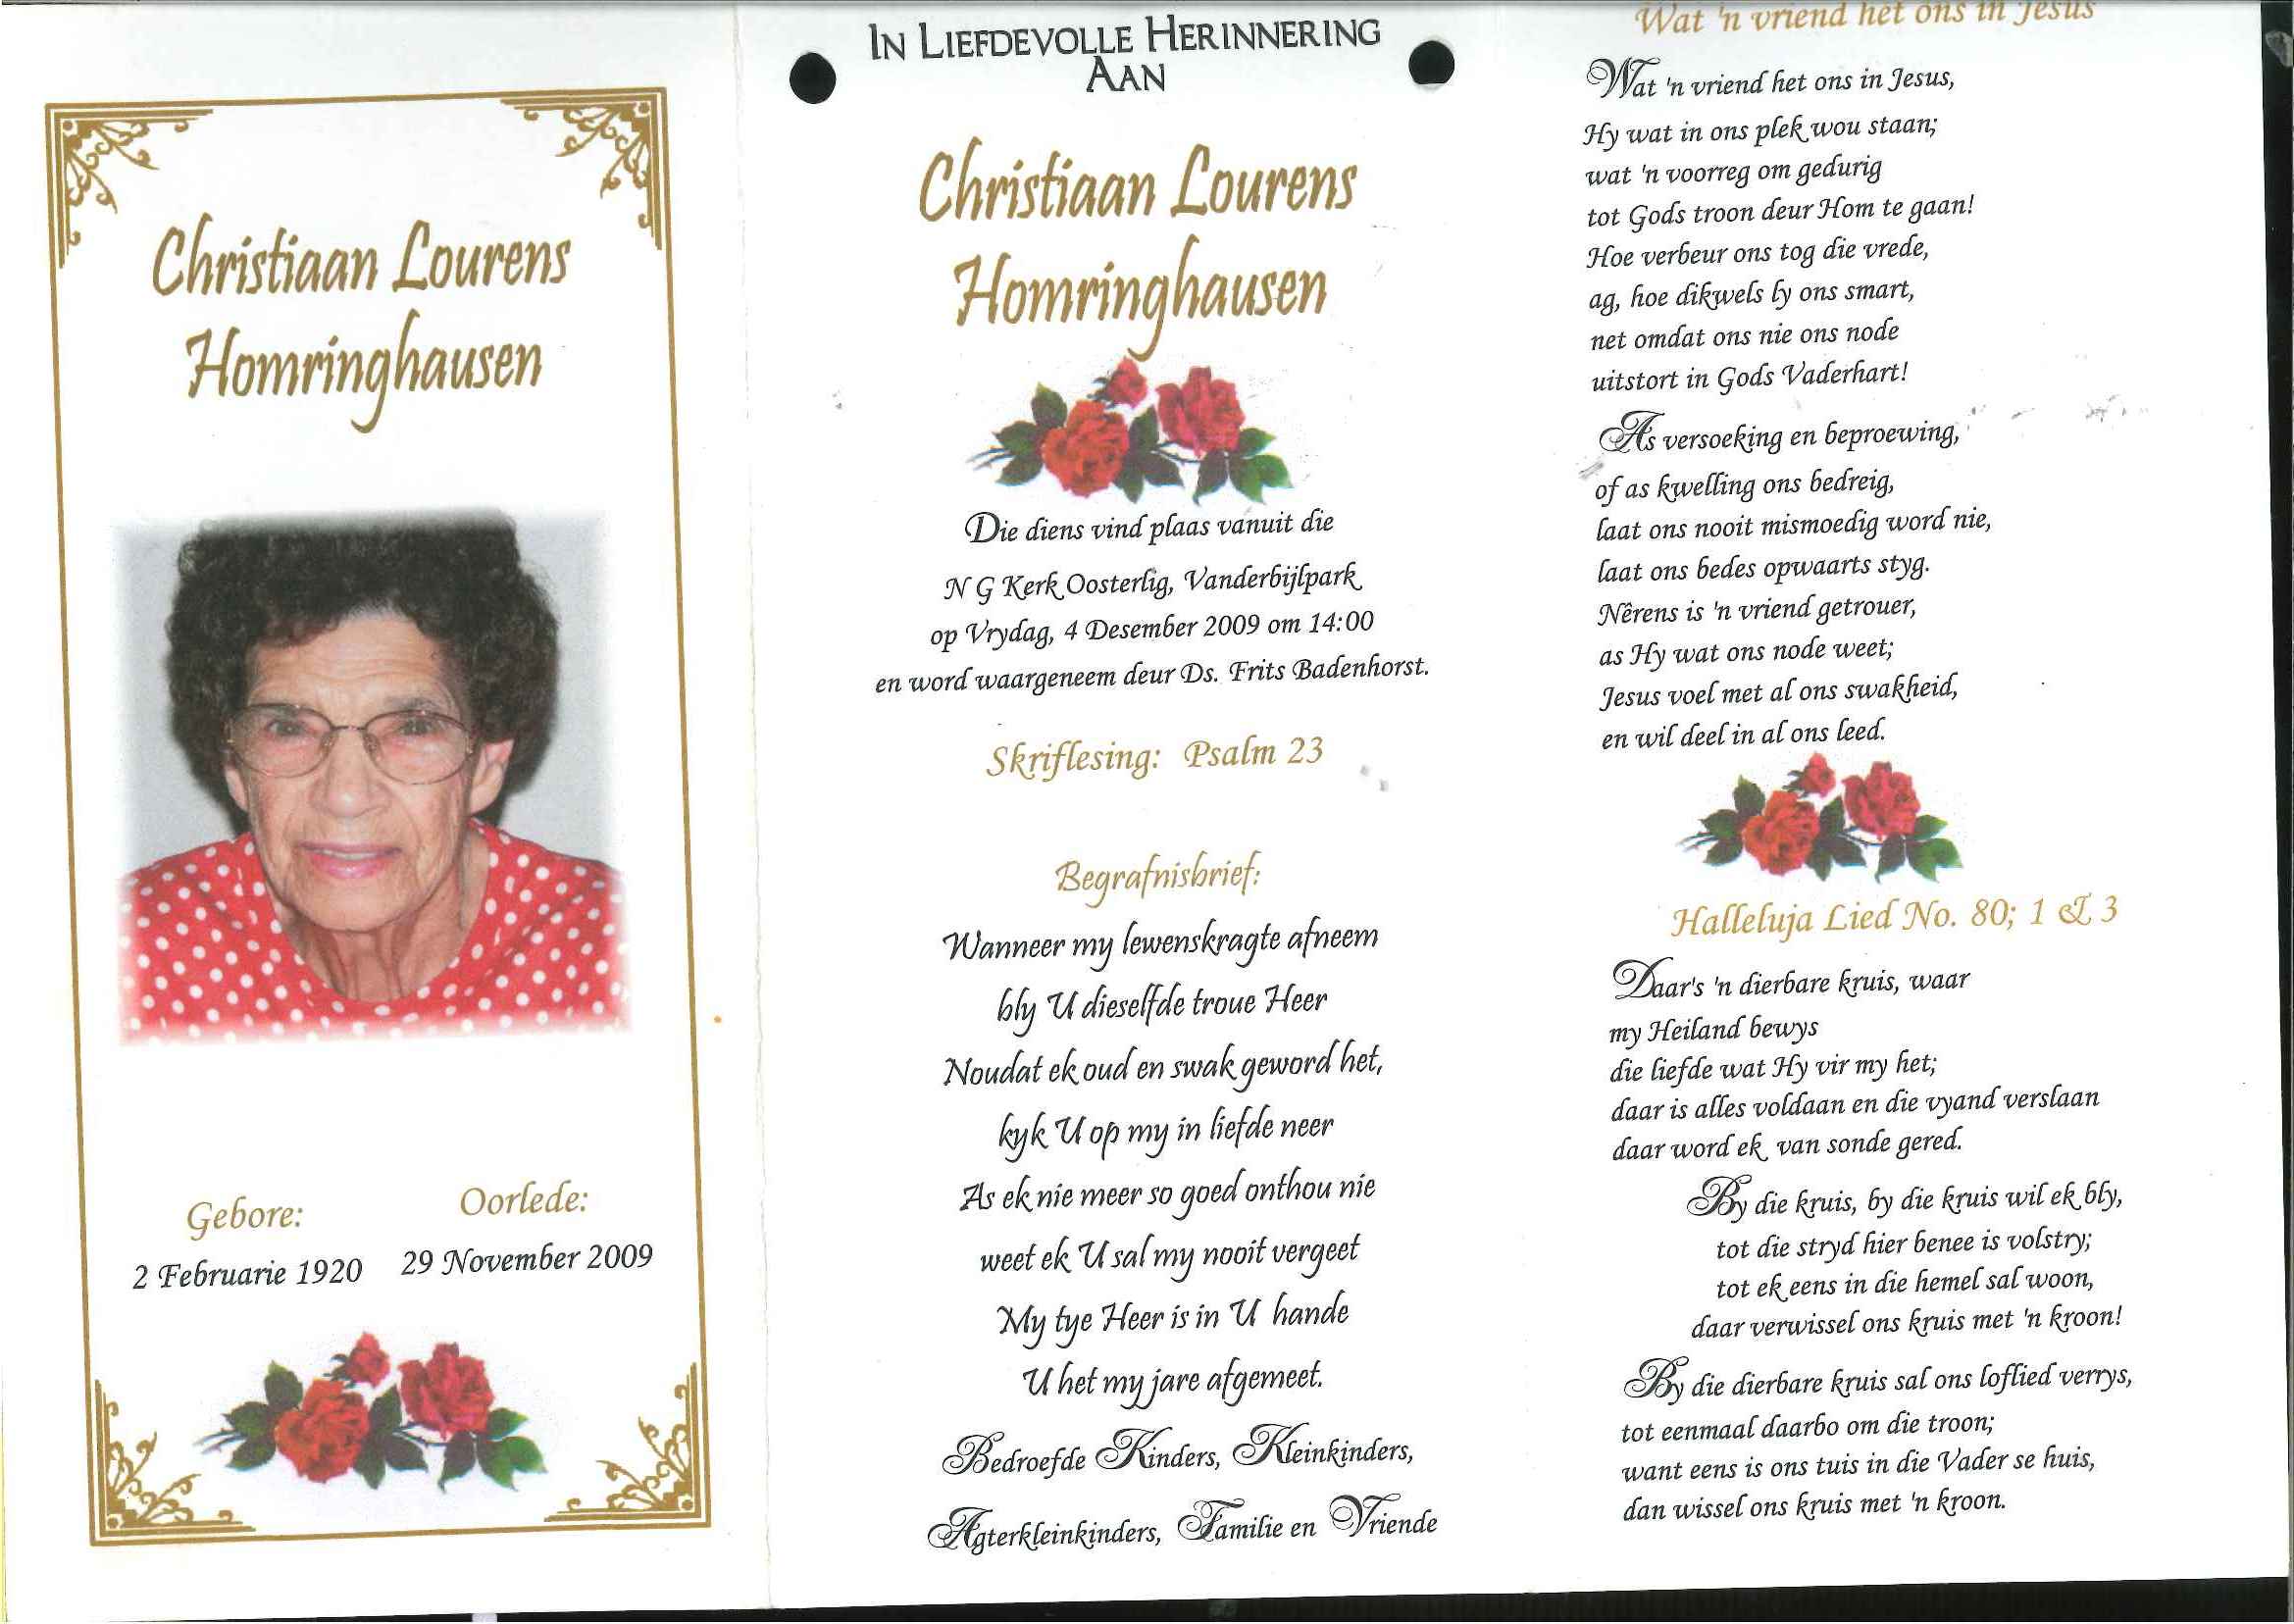 Christiaan Lourens
Homringhausen
Gebore:
2 Februarie 1920
Oorlede:
29 November 2009
IN LIEFDEVOLLE HERINNERING
AAN
Christiaan Lourens
Homringhausen
Die diens vind plaas vanuit die
N G Kerk Oosterlig, Vanderbijlpark
op Vrydag, 4 Desember 2009 om 14:00
en word waargeneem deur Ds. Frits Badenhorst.
Skriflesing: Psalm 23
Begrafnisbrief:
Wanneer my lewenskragte afneem
bly U dieselfde troue Heer
Noudat ek oud en swak geword het,
kyk U op my in liefde neer
As ek nie meer so goed onthou nie
weet ek U sal my nooit vergeet
My tye Heer is in U hande
U het my jare afgemeet.
Bedroefde Kinders, Kleinkinders,
Agterkleinkinders, Familie en Vriende
Wat 'n vriend het ons in Jesus
Wat 'n vriend het ons in Jesus,
Hy wat in ons plek wou staan;
wat 'n voorreg om gedurig
tot Gods troon deur Hom te gaan!
Hoe verbeur ons tog die vrede,
ag, hoe dikwels ly ons smart,
net omdat ons nie ons node
uitstort in Gods Vaderhart!
As versoeking en beproewing,
of as kwelling ons bedreig,
laat ons nooit mismoedig word nie,
laat ons bedes opwaarts styg.
Nêrens is 'n vriend getrouer,
as Hy wat ons node weet;
Jesus voel met al ons swakheid,
en wil deel in al ons leed.
Halleluja Lied No. 80; 1 & 3
Daar's 'n dierbare kruis, waar
my Heiland bewys
die liefde wat Hy vir my het;
daar is alles voldaan en die vyand verslaan
daar word ek van sonde gered.
By die kruis, by die kruis wil ek bly,
tot die stryd hier benee is volstry;
tot ek eens in die hemel sal woon,
daar verwissel ons kruis met 'n kroon!
By die dierbare kruis sal ons loflied verrys,
tot eenmaal daarbo om die troon;
want eens is ons tuis in die Vader se huis,
dan wissel ons kruis met 'n kroon.